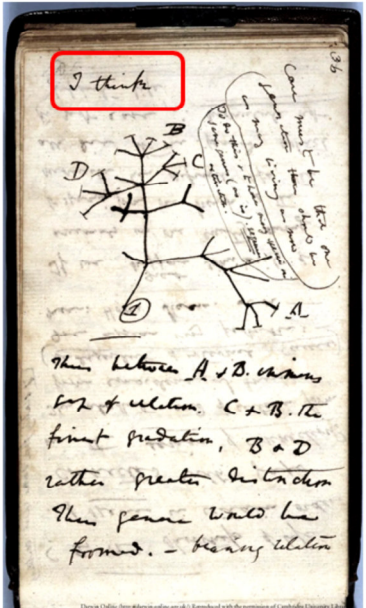 I think
36
Case must be that one
generation then should be
as many living as now
To do this & to have many species in
same genus (as is) requires
extinction
B
D
C
A
1
Thus between A & B. immens
gap of relation. C & B. the
finest gradation, B & D
rather greater distinction
Thus genera would be
formed. — bearing relation